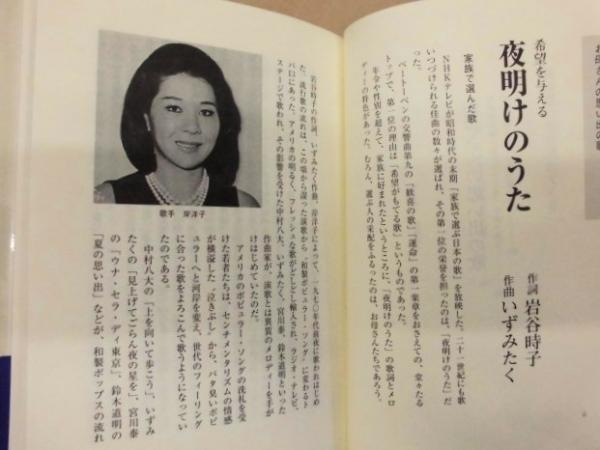 お母さんの思い出の歌
希望を与える
夜明けのうた
作詞 岩谷時子
作曲 いずみたく
家族で選んだ歌
NHKテレビが昭和時代の末期「家族で選ぶ日本の歌」を放映した。二十一世紀にも歌
いつづけられる佳曲の数々が選ばれ、その第一位の栄誉を担ったのは、「夜明けのうた」だ
った。
ベートーベンの交響曲第九の「歓喜の歌」「運命」の第一楽章をおさえての、堂々たる
トップで、第一位の理由は「希望がもてる歌」というものであった。
年令や性別を超えて、家族に好まれたというところに、「夜明けのうた」の歌詞とメロ
ディーの特色があった。むろん、選ぶ人の采配をふるったのは、お母さんたちであろう。
歌手 岸洋子
岩谷時子の作詞、いずみたく作曲、岸洋子によって、一九七〇年代前夜に歌われはじめ
た。流行歌の流れは、この頃から湿った演歌から、和製ポピュラー・ソングに変るトド
バロにあった。アメリカの明るく、フレッシュな歌がどしどし輸入され、ラジオ・テレビ、
ステージで歌われ、その影響を受けた中村八大、いずみたく、宮川泰、鈴木道明といった
作曲家が、演歌とは異質のメロディーを手が
けはじめていたのだ。
アメリカのポピュラー・ソングの洗礼を受
けた若者たちは、センチメンタリズムの情感
が横溢した〝泣きぶし〟から、バタ臭いポピ
ュラーへと河岸を変え、世代のフィーリング
に合った歌をよろこんで歌うようになってい
たのである。
中村八大の「上を向いて歩こう」、いずみ
たくの「見上げてごらん夜の星を」、宮川泰
の「ウナ・セラ・ディ東京」、鈴木道明の
「夏の思い出」などが、和製ポップスの流れ